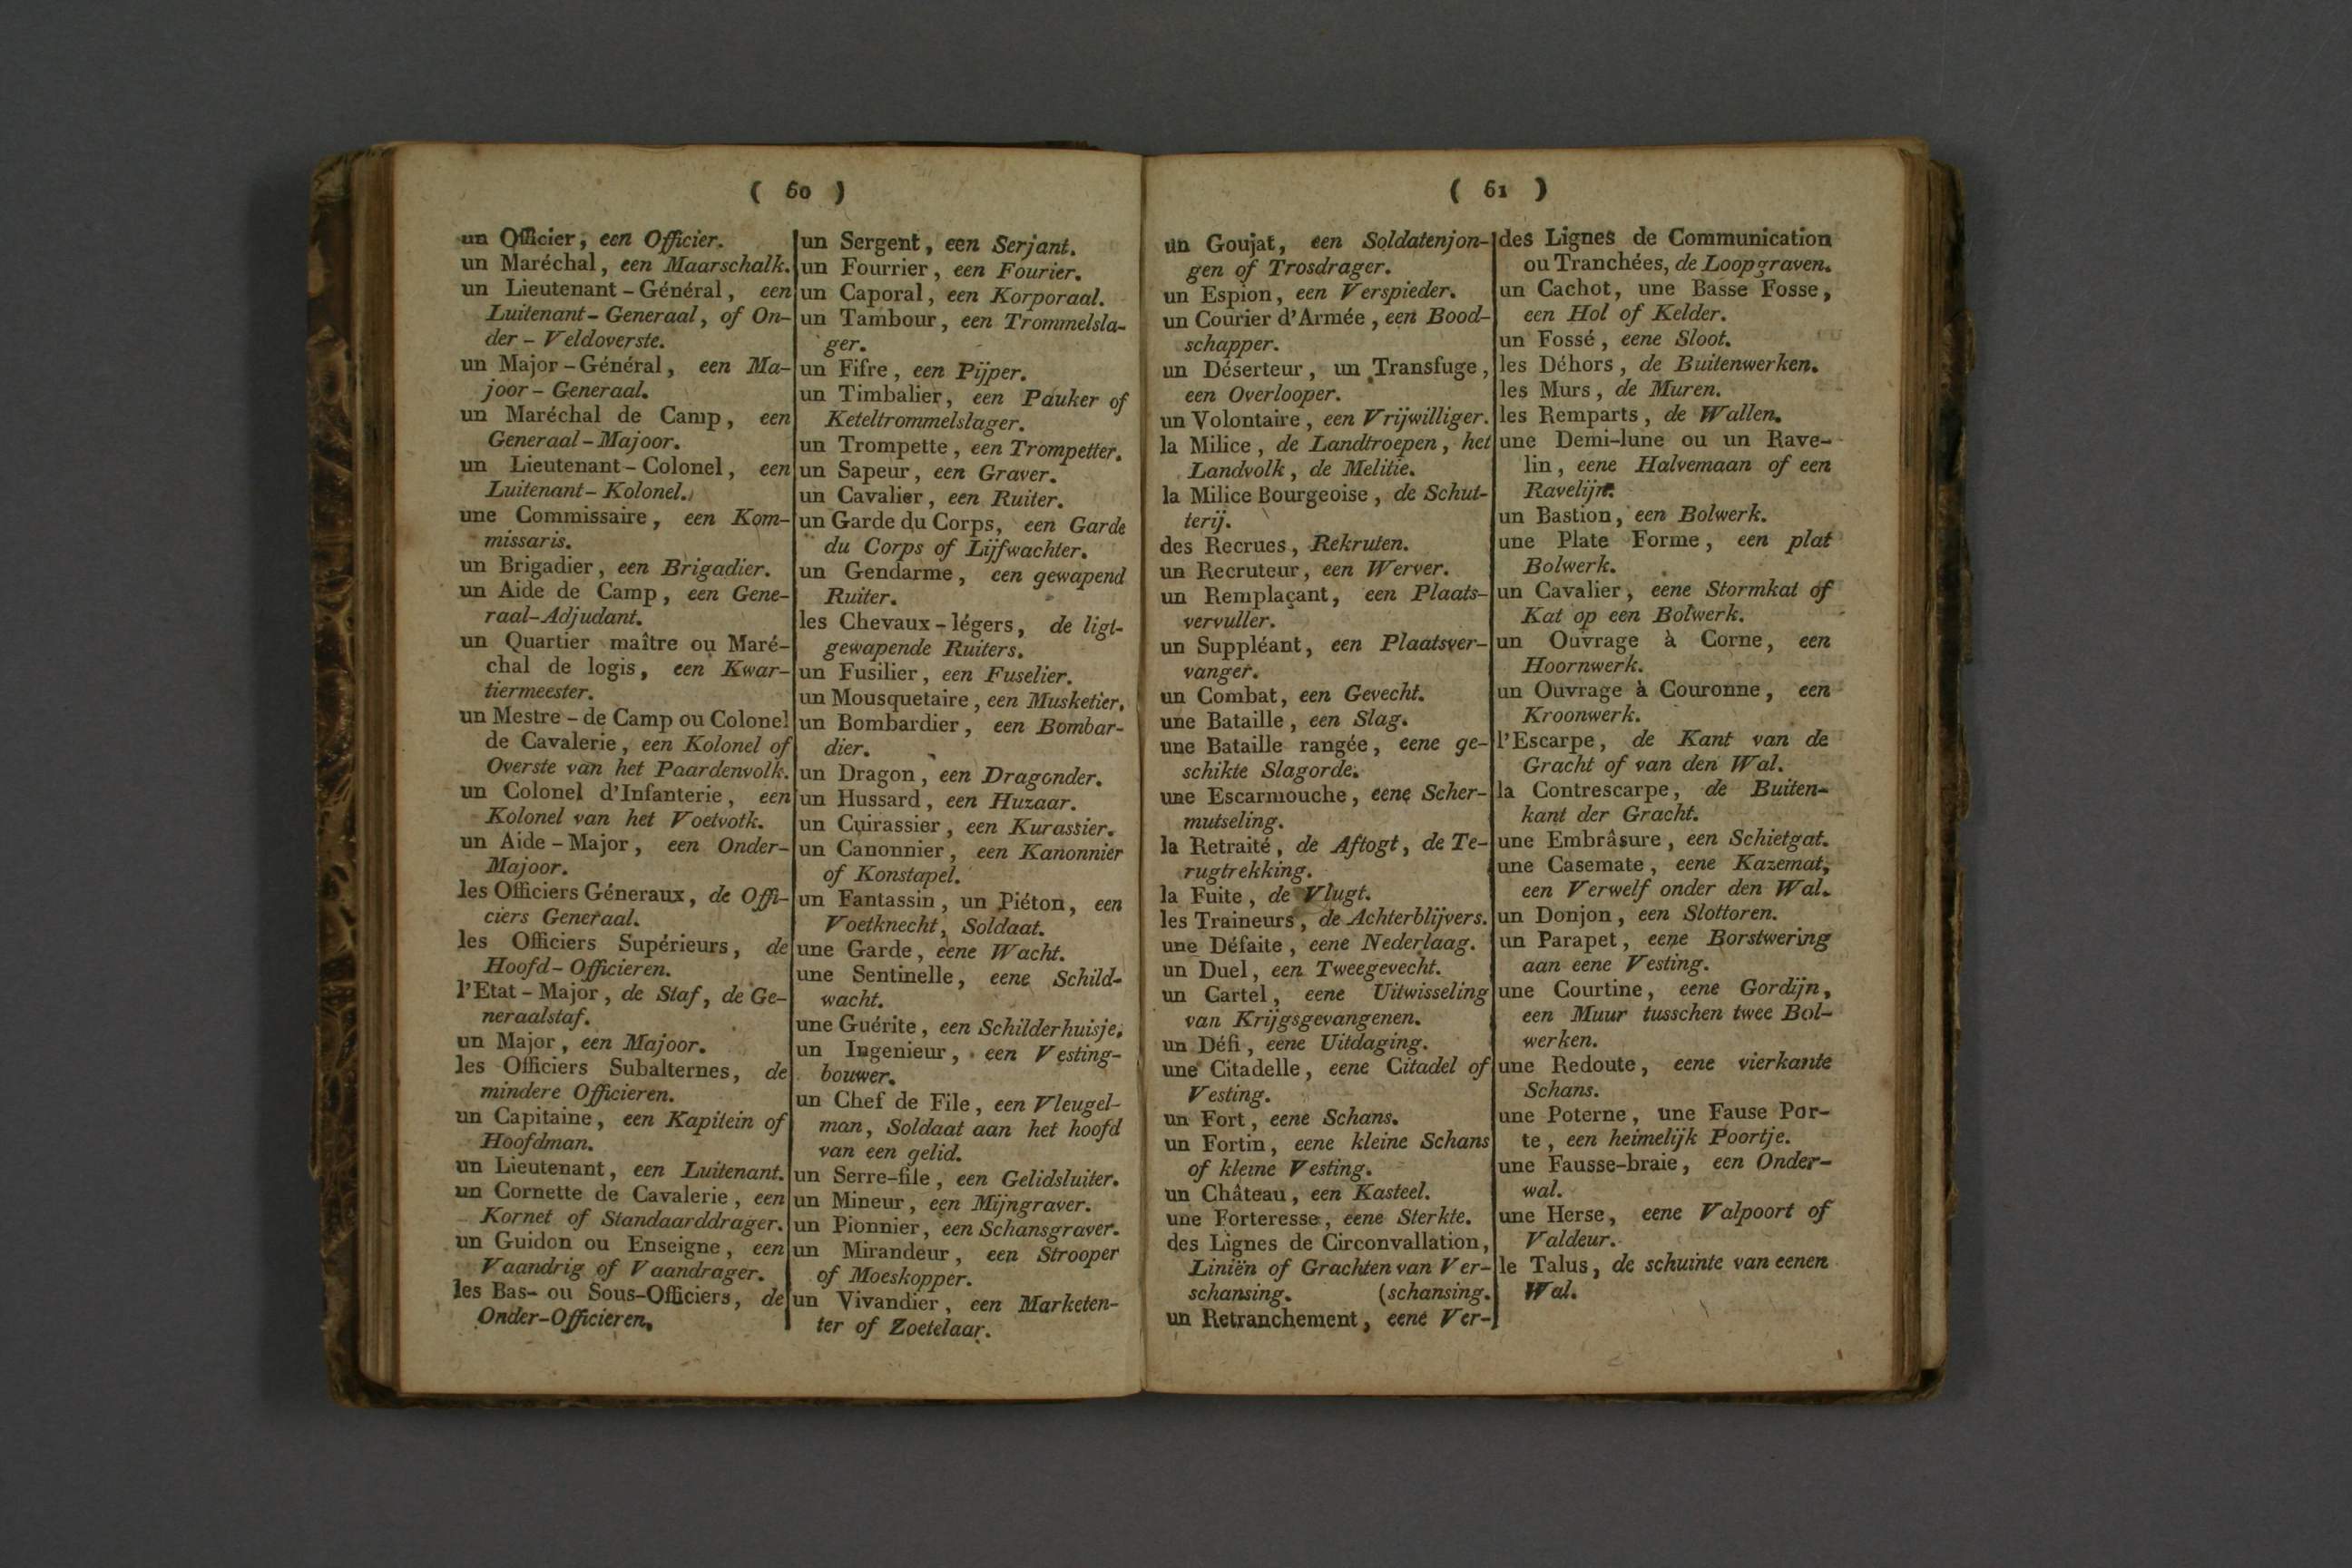 ( 60 )
un Officier, een Officier.
un Maréchal, een Maarschalk.
un Lieutenant-Général, een
Luitenant-Generaal, of On-
der-Veldoverste.
un Major-Général, een Ma-
joor-Generaal.
un Maréchal de Camp, een
Generaal-Majoor.
un Lieutenant-Colonel, een
Luitenant-Kolonel.
une Commissaire, een Kom-
missaris.
un Brigadier, een Brigadier.
un Aide de Camp, een Gene-
raal-Adjudant.
un Quartier maître ou Maré-
chal de logis, een Kwar-
tiermeester.
un Mestre-de Camp ou Colonel
de Cavalerie, een Kolonel of
Overste van het Paardenvolk.
un Colonel d'Infanterie, een
Kolonel van het Voetvotk.
un Aide-Major, een Onder-
Majoor.
les Officiers Géneraux, de Offi-
ciers Generaal.
les Officiers Supérieurs, de
Hoofd-Officieren.
l'Etat-Major, de Staf, de Ge-
neraalstaf.
un Major, een Majoor.
les Officiers Subalternes, de
mindere Officieren.
un Capitaine, een Kapitein of
Hoofdman.
un Lieutenant, een Luitenant.
un Cornette de Cavalerie, een
Kornet of Standaarddrager.
un Guidon ou Enseigne, een
Vaandrig of Vaandrager.
les Bas- ou Sous-Officiers, de
Onder-Officieren.
un Sergent, een Serjant.
un Fourrier, een Fourier.
un Caporal, een Korporaal.
un Tambour, een Trommelsla-
ger.
un Fifre, een Pijper.
un Timbalier, een Pauker of
Keteltrommelslager.
un Trompette, een Trompetter.
un Sapeur, een Graver.
un Cavalier, een Ruiter.
un Garde du Corps, een Garde
du Corps of Lijfwachter.
un Gendarme, een gewapend
Ruiter.
les Chevaux-légers, de ligt-
gewapende Ruiters.
un Fusilier, een Fuselier.
un Mousquetaire, een Musketier.
un Bombardier, een Bombar-
dier.
un Dragon, een Dragonder.
un Hussard, een Huzaar.
un Cuirassier, een Kurassier.
un Canonnier, een Kanonnier
of Konstapel.
un Fantassin, un Piéton, een
Voetknecht, Soldaat.
une Garde, eene Wacht.
une Sentinelle, eene Schild-
wacht.
une Guérite, een Schilderhuisje.
un Ingenieur, een Vesting-
bouwer.
un Chef de File, een Vleugel-
man, Soldaat aan het hoofd
van een gelid.
un Serre-file, een Gelidsluiter.
un Mineur, een Mijngraver.
un Pionnier, een Schansgraver.
un Mirandeur, een Strooper
of Moeskopper.
un Vivandier, een Marketen-
ter of Zoetelaar.
( 61 )
un Goujat, een Soldatenjon-
gen of Trosdrager.
un Espion, een Verspieder.
un Courier d'Armée, een Bood-
schapper.
un Déserteur, un Transfuge,
een Overlooper.
un Volontaire, een Vrijwilliger.
la Milice, de Landtroepen, het
Landvolk, de Melitie.
la Milice Bourgeoise, de Schut-
terij.
des Recrues, Rekruten.
un Recruteur, een Werver.
un Remplaçant, een Plaats-
vervuller.
un Suppléant, een Plaatsver-
vanger.
un Combat, een Gevecht.
une Bataille, een Slag.
une Bataille rangée, eene ge-
schikte Slagorde.
une Escarmouche, eene Scher-
mutseling.
la Retraité, de Aftogt, de Te-
rugtrekking.
la Fuite, de Vlugt.
les Traineurs, de Achterblijvers.
une Défaite, eene Nederlaag.
un Duel, een Tweegevecht.
un Cartel, eene Uitwisseling
van Krijgsgevangenen.
un Défi, eene Uitdaging.
une Citadelle, eene Citadel of
Vesting.
un Fort, eene Schans.
un Fortin, eene kleine Schans
of kleine Vesting.
un Château, een Kasteel.
une Forteresse, eene Sterkte.
des Lignes de Circonvallation,
Liniën of Grachten van Ver-
schansing. (schansing.
un Retranchement, eene Ver-
des Lignes de Communication
ou Tranchées, de Loopgraven.
un Cachot, une Basse Fosse,
een Hol of Kelder.
un Fossé, eene Sloot.
les Déhors, de Buitenwerken.
les Murs, de Muren.
les Remparts, de Wallen.
une Demi-lune ou un Rave-
lin, eene Halvemaan of een
Ravelijn.
un Bastion, een Bolwerk.
une Plate Forme, een plat
Bolwerk.
un Cavalier, eene Stormkat of
Kat op een Bolwerk.
un Ouvrage à Corne, een
Hoornwerk.
un Ouvrage à Couronne, een
Kroonwerk.
l'Escarpe, de Kant van de
Gracht of van den Wal.
la Contrescarpe, de Buiten-
kant der Gracht.
une Embrâsure, een Schietgat.
une Casemate, eene Kazemat,
een Verwelf onder den Wal.
un Donjon, een Slottoren.
un Parapet, eene Borstwering
aan eene Vesting.
une Courtine, eene Gordijn,
een Muur tusschen twee Bol-
werken.
une Redoute, eene vierkante
Schans.
une Poterne, une Fause Por-
te, een heimelijk Poortje.
une Fausse-braie, een Onder-
wal.
une Herse, eene Valpoort of
Valdeur.
le Talus, de schuinte van eenen
Wal.